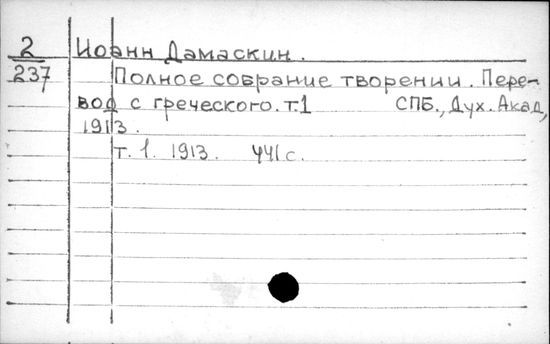 2 Иоанн Дамаскин.
237 Полное собрание творении. Пере-
вод с греческого. т.1 СПБ., Дух. Акад,
1913.
т. 1. 1913. 441 с.